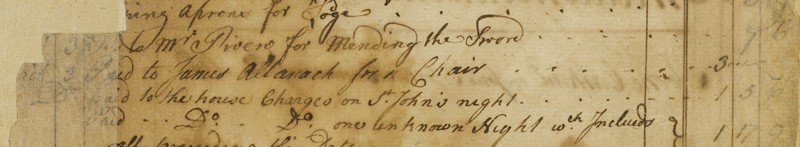 ing aprons for Loge
to Mr Rivers for Mending the Sword 7 6
3 Paid to James Allanach for a Chair 3
Do paid to the house Charges on St John's night 1 5
paid Do Do one unknown Night wch Includs 1 17 9
all preceding this Date